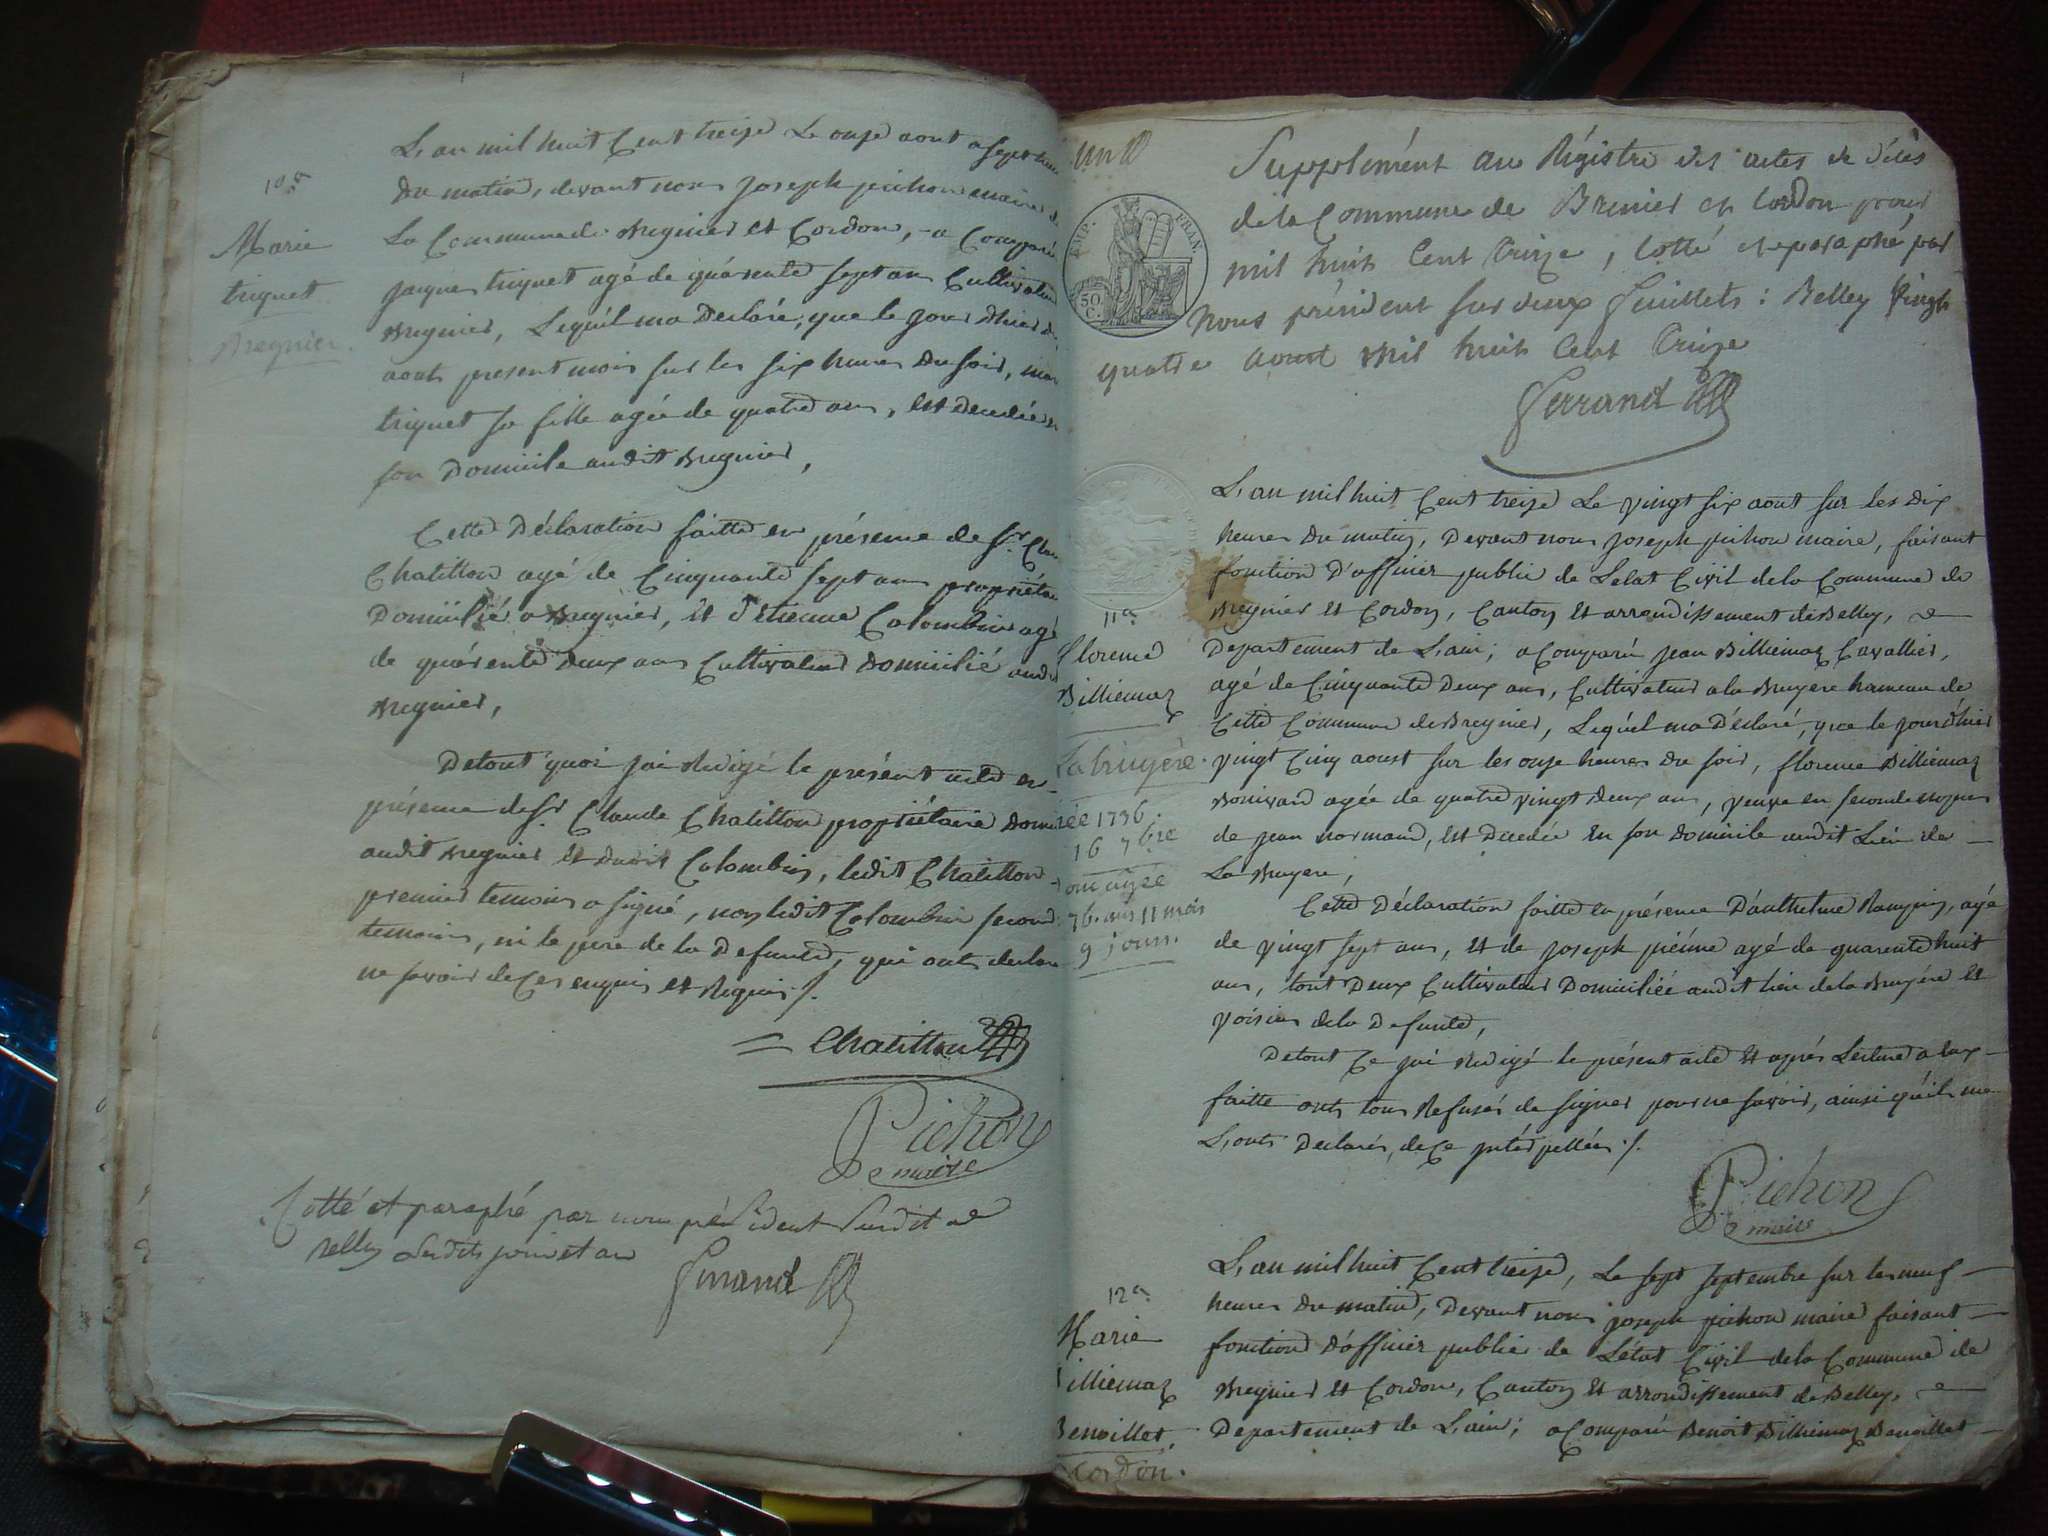 10e
Marie
triquet
Bregnier.
L'an mil huit Cent treize Le onze aout a sept heu
du matin, devant nous joseph pichon maire de
La Commune de Bregnier et Cordon, a Comparu
jaques triquet agé de quárente sept ans Cultivateur
Bregnier, Lequél ma Déclaré, que le jour dhier
aout present mois sur les six heures du soir, mar
triquet sa fille agée de quatre ans, est décedée
son Domicile audit Bregnier,
Cette Déclaration faitte en présence de Sr. Clau
Chatillon agé de Cinquante sept ans propriétai
Domicilié a Bregnier, et d'étienne Colombin agé
de quárente deux ans Cultivateur domicilié audit
Bregnier,
De tout quoi jai Rédigé le présent acte en
présence de Sr. Claude Chatillon propriétaire Domi
audit Bregnier et dudit Colombin, ledit Chatillon
premier temoin a signé, non ledit Colombin second
temoin, ni le pere de la Defunte, qui ont declaré
ne savoir de Ces enquis et Requis ./.
Chatillon
Pichon
maire
Cotté et paraphé par nous président Susdit a
Belley Lesdits jour et an
Ferrand
un
Supplément au Régistre des actes de Décès
de la Commune de Brenier et Cordon pour
mil huit Cent Treize, Cotté et paraphé par
Nous président sur deux feuillets : Belley Vingt
quatre Aoust Mil huit Cent Treize
Ferrand
EMP. FRAN.
50 C.
11e
florence
Billiemaz
Labruyere.
née 1736.
16 7bre
donc agée
76 ans 11 mois
9 jours.
L'an mil huit Cent treize Le vingt six aout sur les dix
heures du matin, Devant nous joseph pichon maire, faisant
fonction D'officier public de Letat Civil de la Commune de
Bregnier et Cordon, Canton et arrondissement de Belley,
Departement de L'ain ; a Comparu jean Billiemaz Cavallier,
agé de Cinquante Deux ans, Cultivateur a la Bruyere hameau de
Cette Commune de Bregnier, Lequél ma Déclaré, que le jour d'hier
vingt Cinq aoust sur les onze heures du soir, florence Billiemaz
Bonivard agée de quatre vingt deux ans, veuve en seconde noces
de jean normand, est Decedée en son domicile audit Lieu de
La Bruyere,
Cette Déclaration faitte en présence D'anthelme Rampin, agé
de vingt sept ans, et de joseph piéme agé de quarente huit
ans, tout Deux Cultivateur Domiciliée audit lieu de la Bruyére et
voisins de la Defunte,
De tout Ce jai Rédigé le présent acte et aprés Lecture a eux
faitte ont tous Refusés de signer pour ne savoir, ainsi quéils me
L'ont Declarés, de Ce intérpellés ./.
Pichon
maire
12e
Marie
Billiemaz
Benoillet,
Cordon.
L'an mil huit Cent treize, Le sept septembre sur les neuf
heures du matin, Devant nous joseph pichon maire faisant
fonction D'officier public de L'état Civil de la Commune de
Bregnier et Cordon, Canton et arrondissement de Belley,
Departement de L'ain ; a Comparu Benoit Billiemaz Benoillet